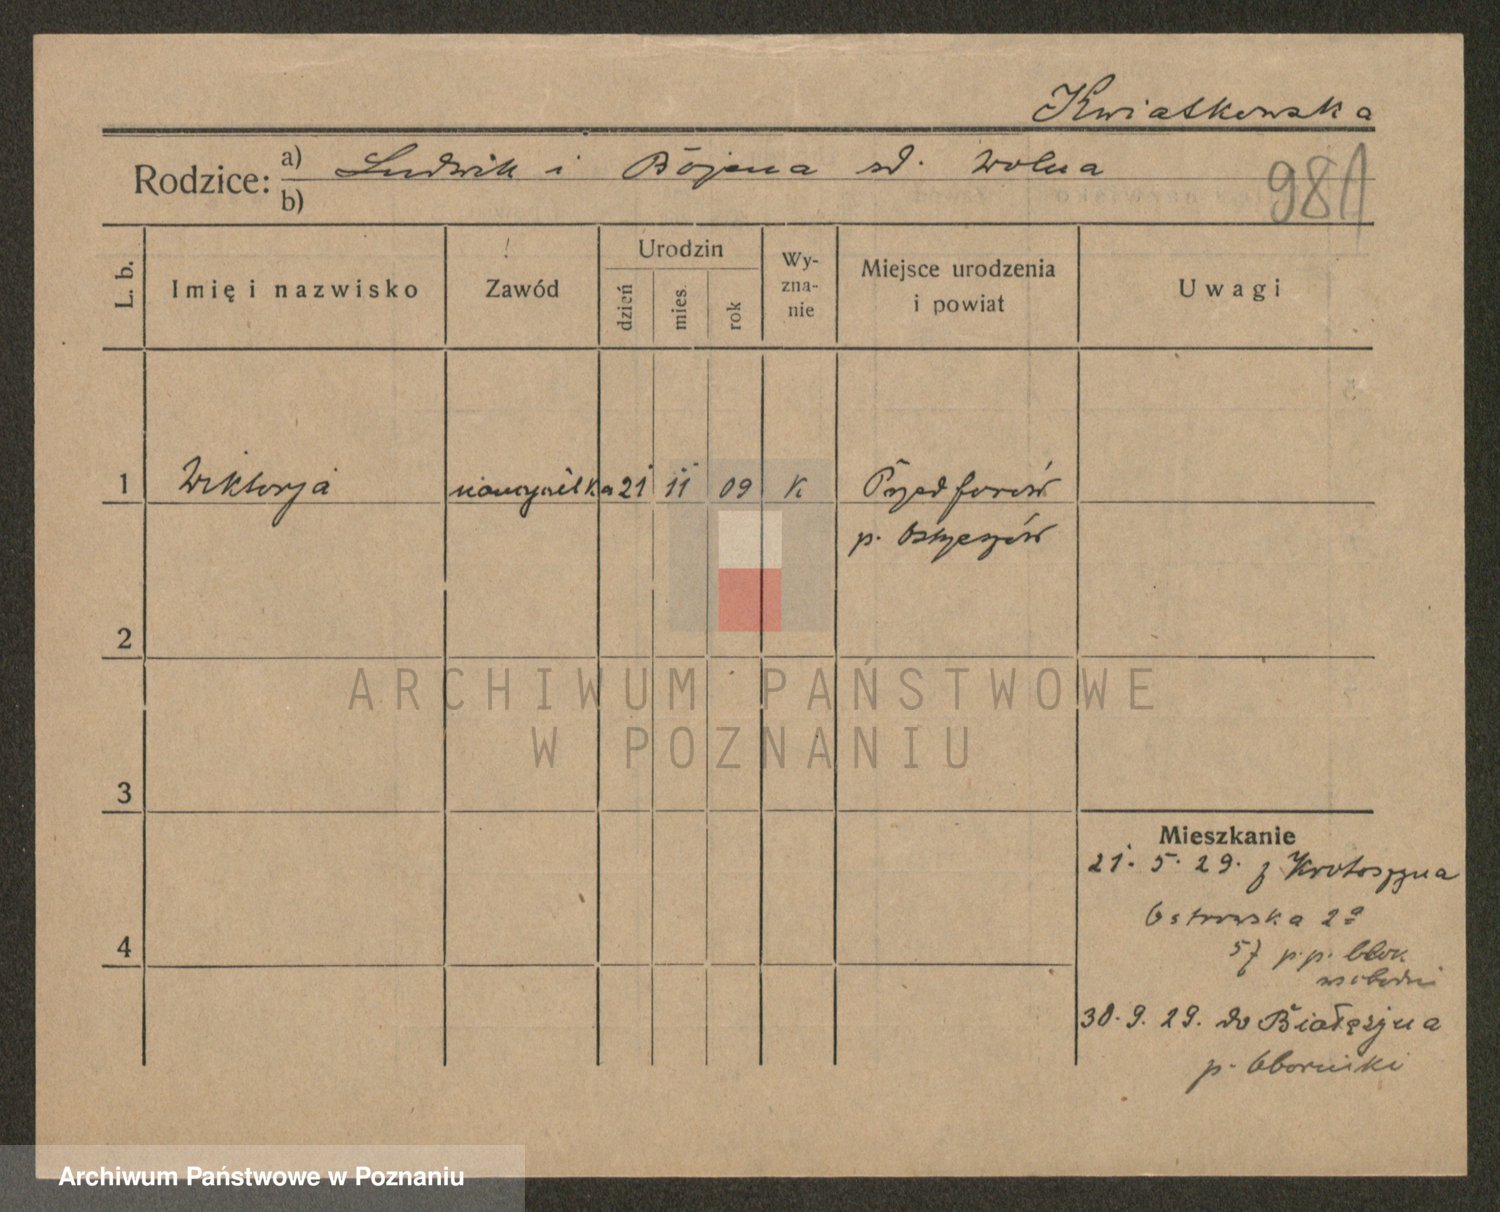 Kwiatkowska
Rodzice: a) Ludwik i Bożena sd. Wolna
b)
98A
L. b.
Imię i nazwisko
Zawód
Urodzin
dzień
mies.
rok
Wy-
zna-
nie
Miejsce urodzenia
i powiat
Uwagi
1 Wiktorja nauczycielka 21 11 09 K
p. Ostrzeszów
2
3
4
Mieszkanie
21. 5. 29. z Krotoszyna
Ostrowska 2a
57 p.p. blok
30. 9. 29. do Białężyna
p. Oborniki
ARCHIWUM PAŃSTWOWE
W POZNANIU
Archiwum Państwowe w Poznaniu